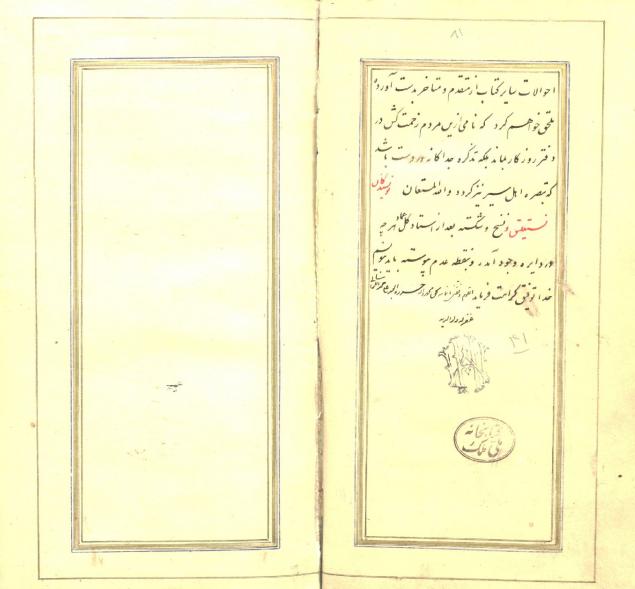 ۸۱
احوالات سایر کتاب از متقدم و متأخر بدست آورده
ملحق خواهم کرد که نامی ازین مردم زحمت کش در
دفتر روزگار بماند بلکه تذکره جداگانه در دست باشد
که تبصره اهل سیر نیز گردد والله المستعان نویسندگان
نستعلیق و نسخ و شکسته بعد از استاد کل عماد هر چه
در دایره وجود آمده و بنقطه عدم پیوسته باید بنویسم
خدا توفیق کرامت فرماید
غفرله ولوالدیه
۴۱
کتابخانه
ملی ملک